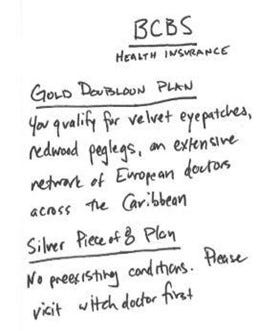 BCBS
HEALTH INSURANCE
GOLD DOUBLOON PLAN
You qualify for velvet eyepatches,
redwood peglegs, an extensive
network of European doctors
across the Caribbean
Silver Piece of 8 Plan
No preexisting conditions. Please
visit witch doctor first